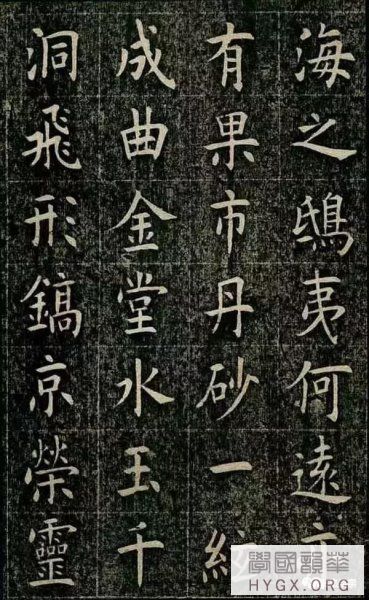 海之鴟夷何遠
有果市丹砂一
成曲金堂水玉千
洞飛形鎬京榮靈
華韻國學
HYGX.ORG